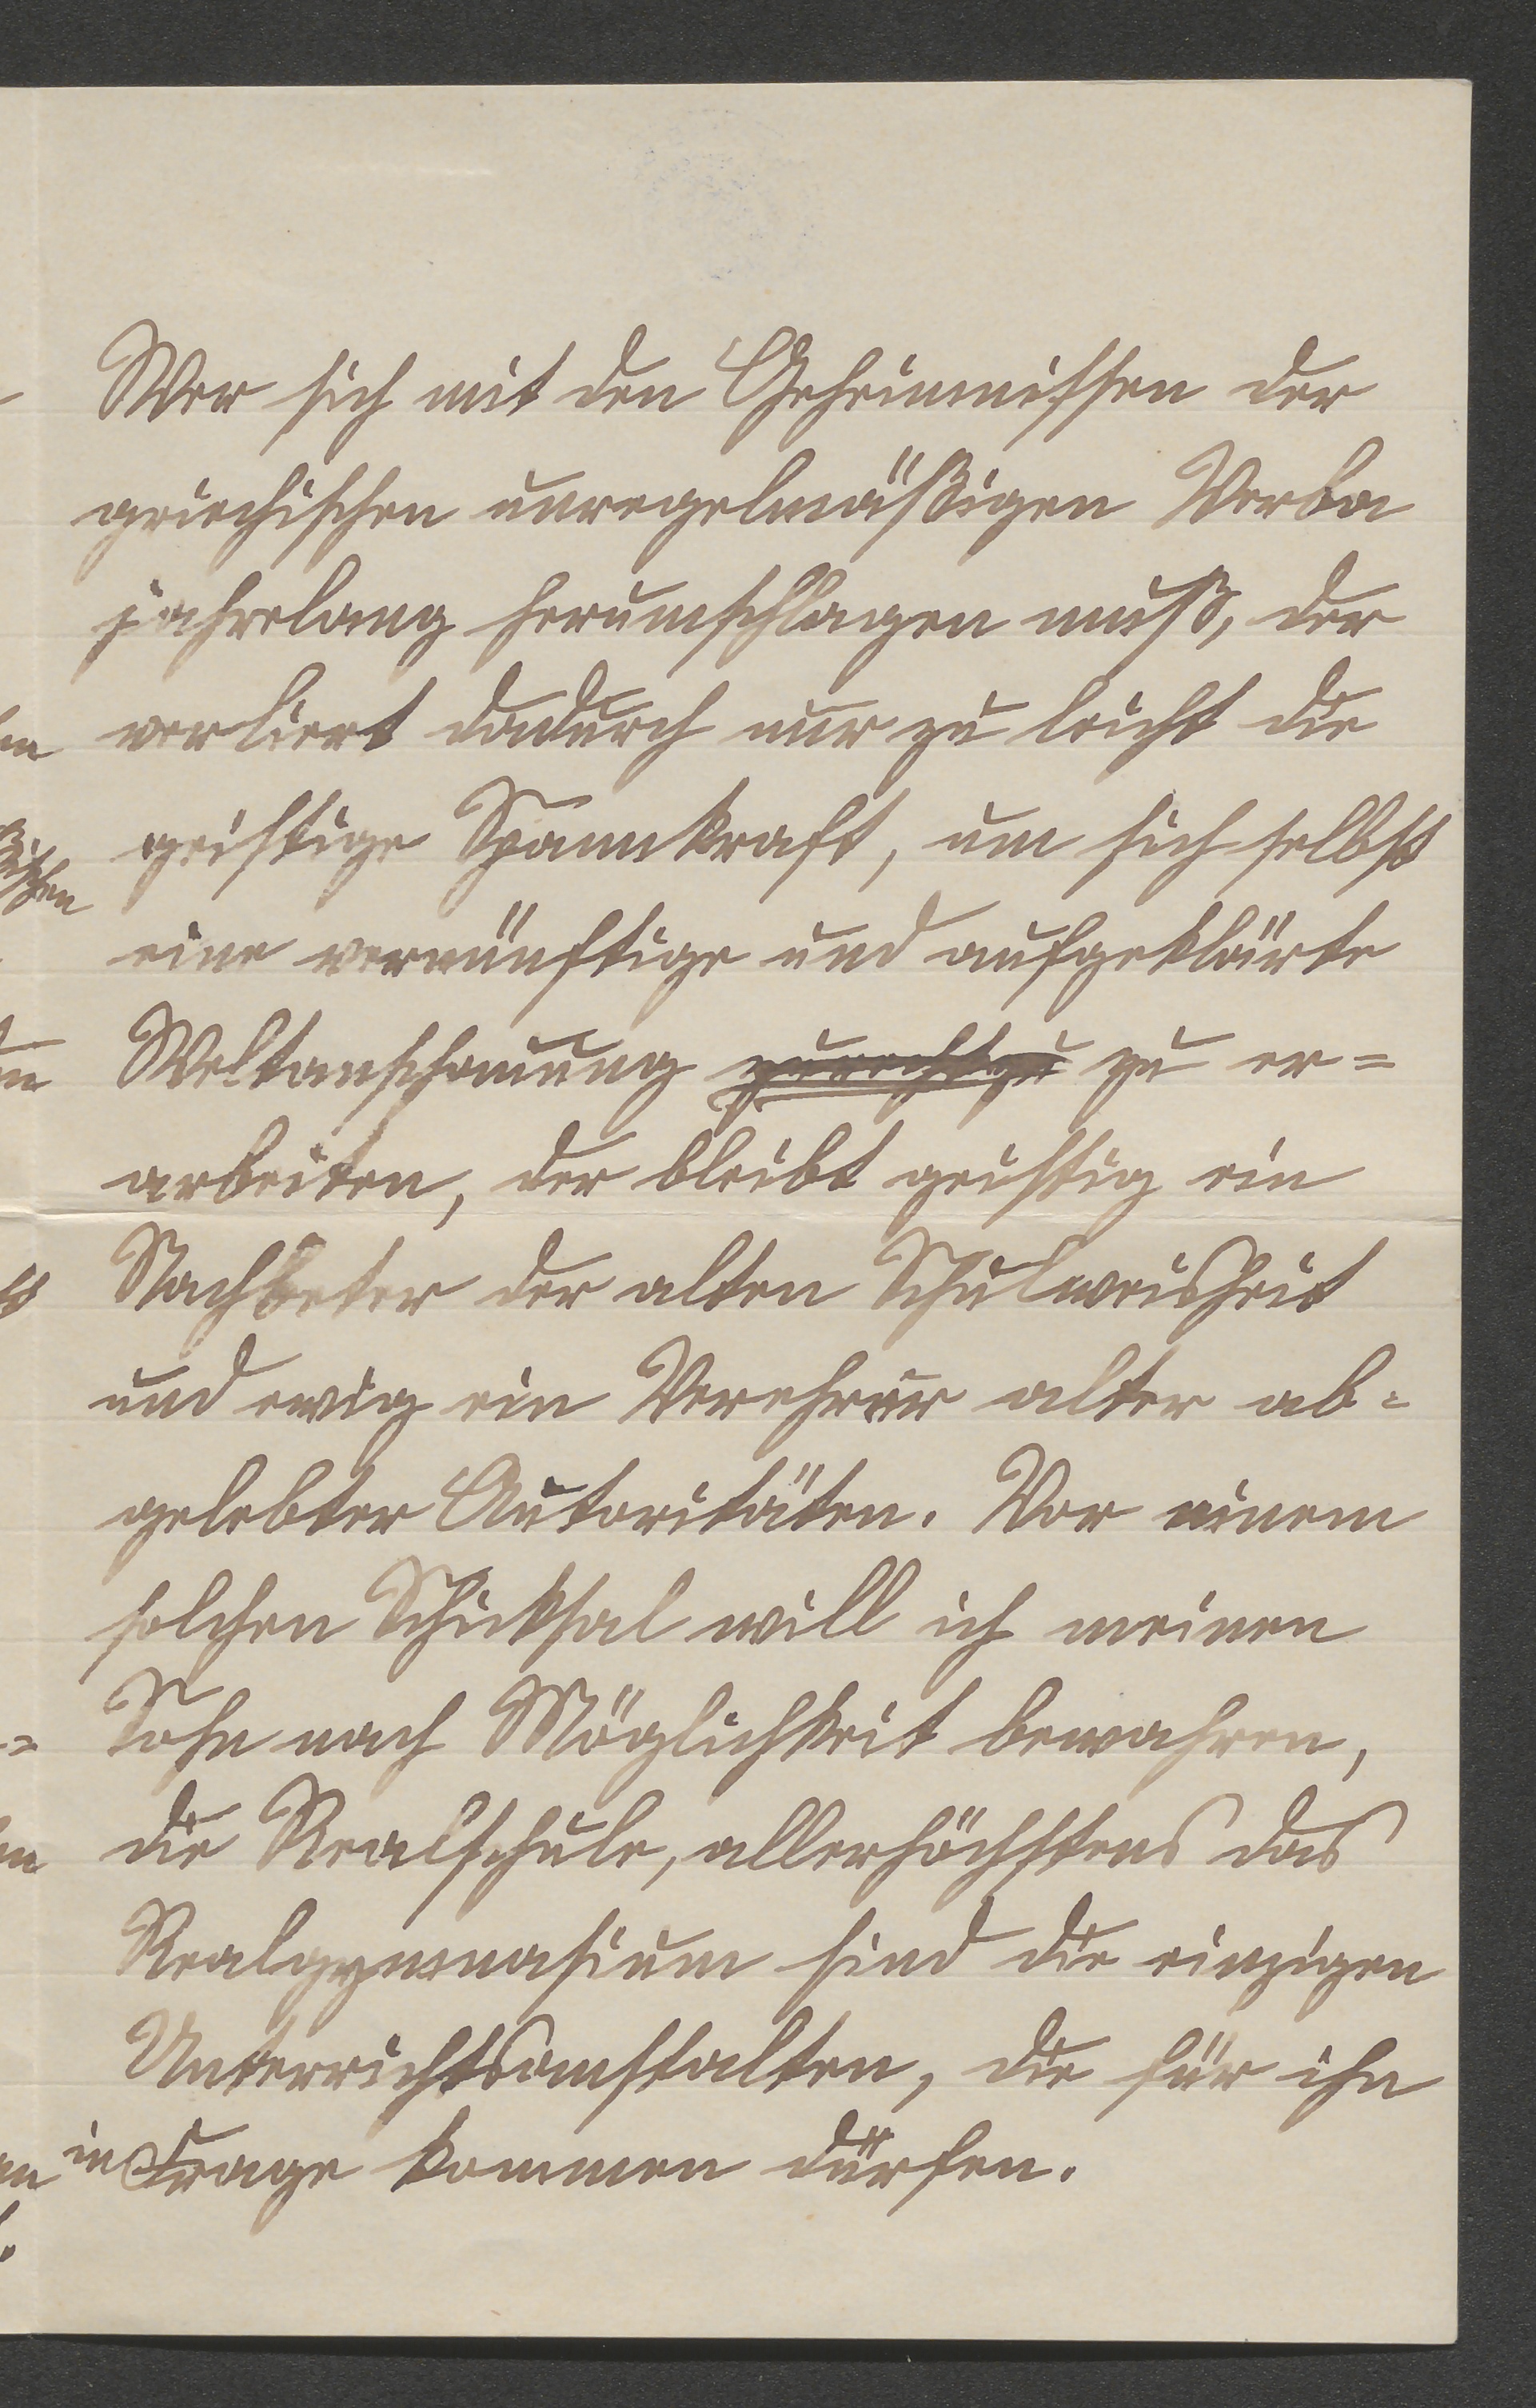 Wer sich mit den Geheimnissen der
griechischen unregelmäßigen Verba
jahrelang herumschlagen muß, der
verliert dadurch nur zu leicht die
geistige Spannkraft, um sich selbst
eine vernünftige und aufgeklärte
Weltanschauung zurechtzu zu er=
arbeiten, der bleibt geistig ein
Nachbeter der alten Schulweisheit
und ewig ein Verehrer alter ab=
gelebter Autoritäten. Vor einem
solchen Schicksal will ich meinen
Sohn nach Möglichkeit bewahren,
die Realschule, allerhöchstens das
Realgymnasium sind die einzigen
Unterrichtsanstalten, die für ihn
in Frage kommen dürfen.